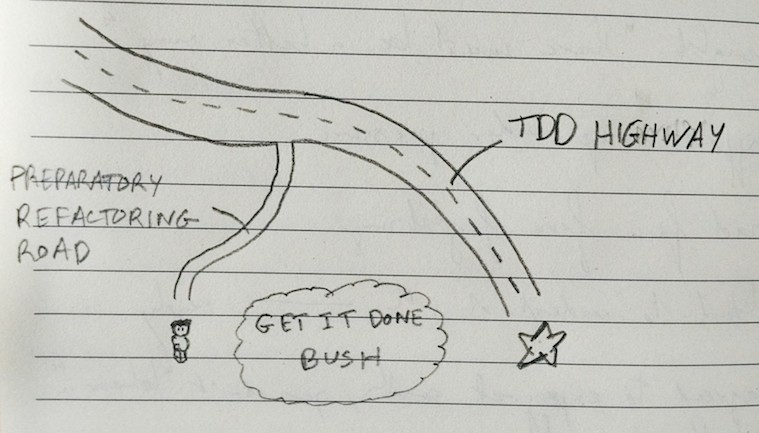 TDD HIGHWAY
PREPARATORY
REFACTORING
ROAD
GET IT DONE
BUSH